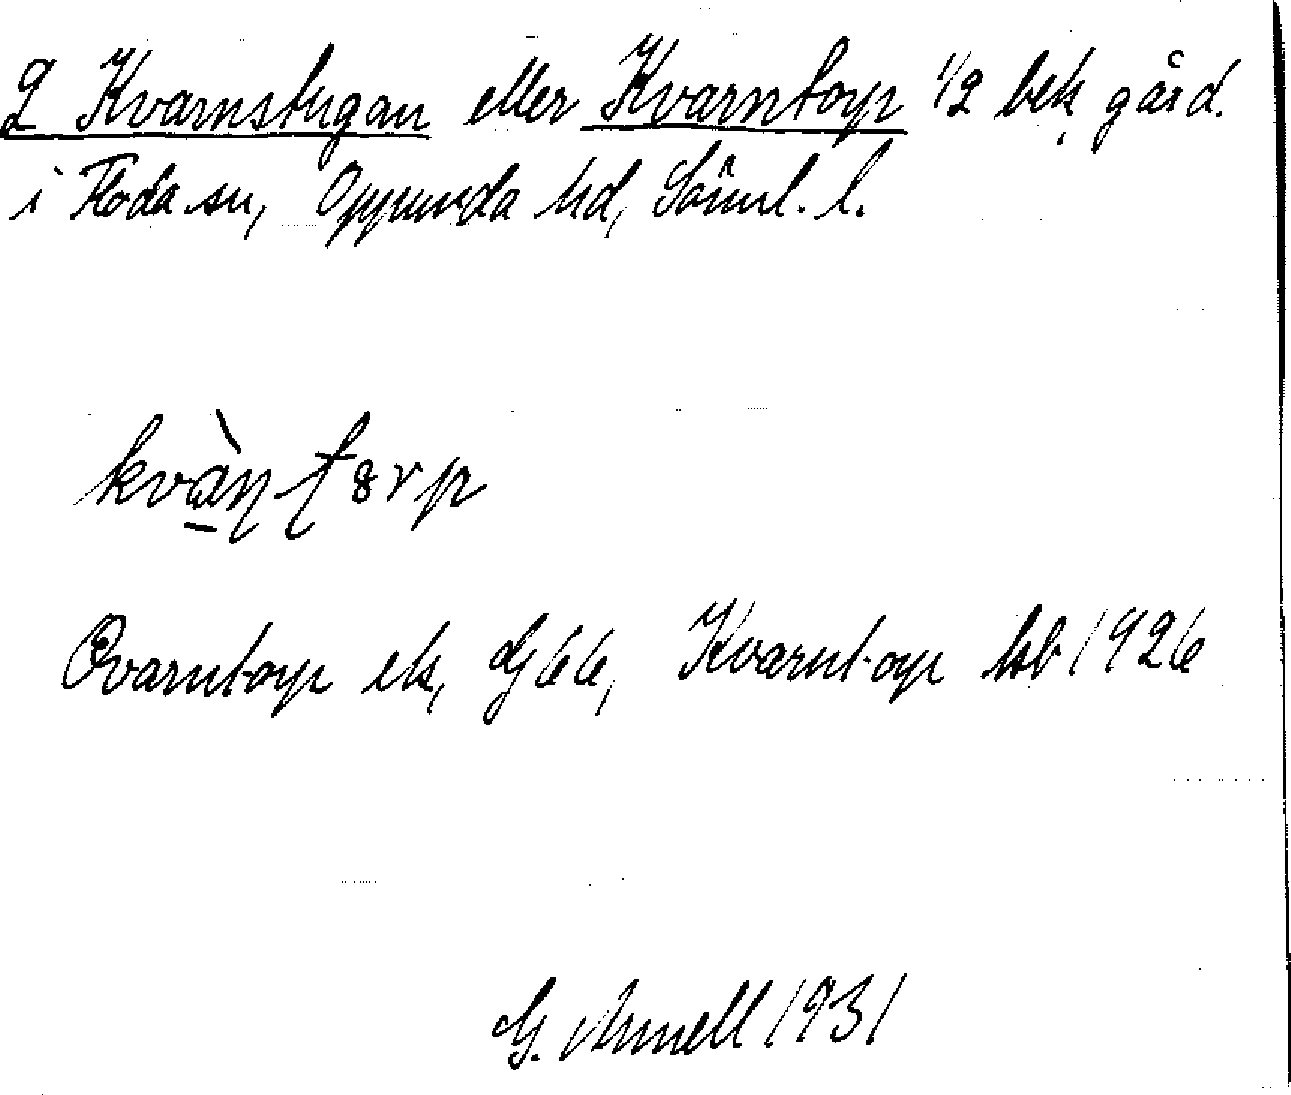 2 Kvarnstugan eller Kvarntorp 1/2 bek gård.
i Floda sn, Oppunda hd, Söml. l.
kvàṉ torp
Qvarntorp ek, G 66, Kvarntorp hsb 1926
G. Arnell 1931